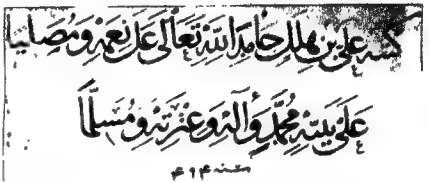 كتبه علي بن هلال حامدا الله تعالى على نعمه ومصليا
على نبيه محمد وآله وعترته ومسلما
سنة ٤١٤